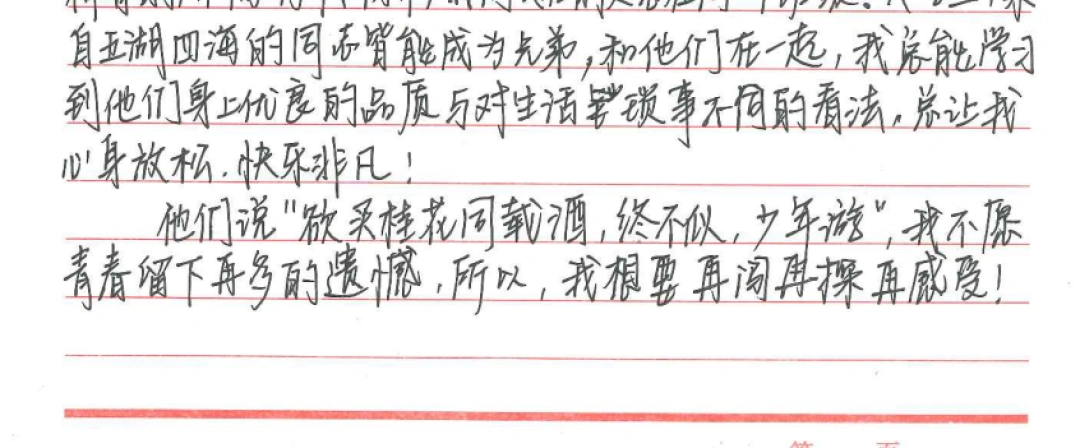 自五湖四海的同志皆能成为兄弟,和他们在一起,我总能学习
到他们身上优良的品质与对生活琐事不同的看法。总让我
心身放松.快乐非凡!
他们说"欲买桂花同载酒,终不似,少年游",我不愿
青春留下再多的遗憾.所以,我想要再闯再探再感受!
第 页